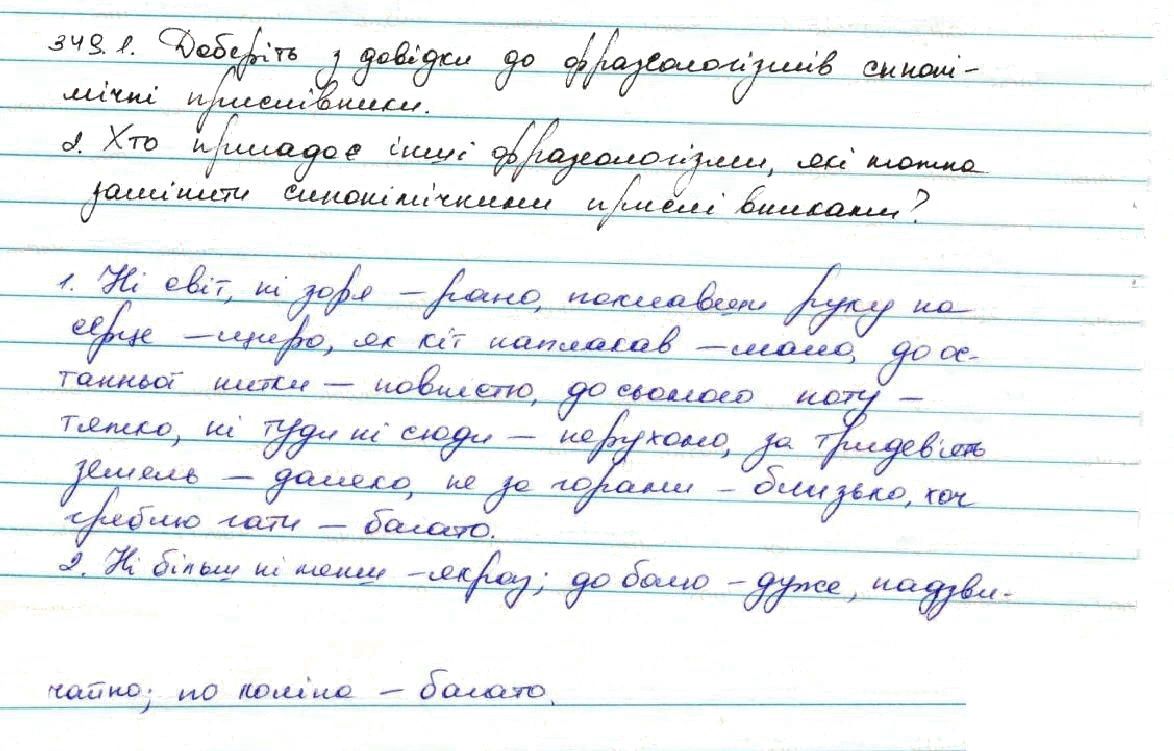 349.1. Доберіть з довідки до фразеологізмів синоні-
мічні прислівники.
2. Хто пригадає інші фразеологізми, які можна
замінити синонімічними прислівниками?
1. Ні світ, ні зоря – рано, поклавши руку на
серце – щиро, як кіт наплакав – мало, до ос-
танньої нитки – повністю, до сьомого поту –
тяжко, ні туди ні сюди – нерухомо, за тридев'ять
земель – далеко, не за горами – близько, хоч
греблю гати – багато.
2. Ні більш ні менш – якраз; до болю – дуже, надзви-
чайно; по коліна – багато.